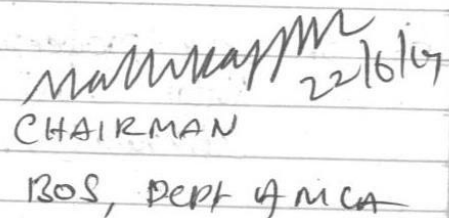 22/6/19
CHAIRMAN
BOS, Dept of MCA